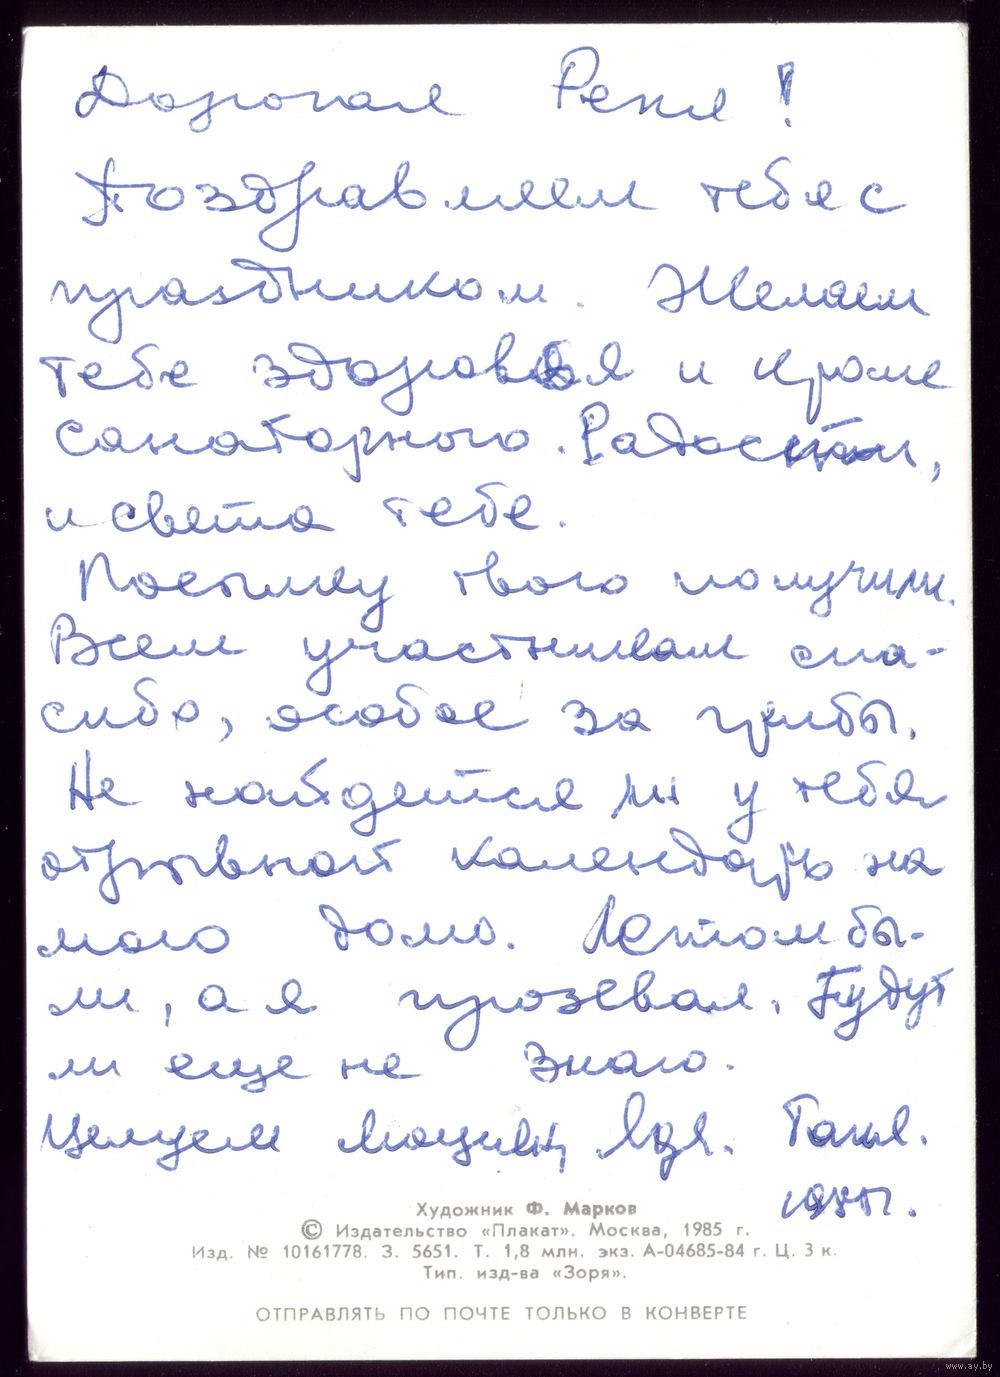 Дорогая Реня!
Поздравляем тебя с
праздником. Желаем
тебе здоровья и кроме
санаторного. Радости,
и света тебе.
Посылку твою получили.
Всем участникам спа-
сибо, особое за грибы.
Не найдется ли у тебя
отрывной календарь на
мою долю. Летом бы-
ли, а я прозевал. Будут
ли еще не знаю.
Целуем Таня.
Художник Ф. Марков
© Издательство «Плакат». Москва, 1985 г.
Изд. № 10161778. З. 5651. Т. 1,8 млн. экз. А-04685-84 г. Ц. 3 к.
Тип. изд-ва «Зоря».
ОТПРАВЛЯТЬ ПО ПОЧТЕ ТОЛЬКО В КОНВЕРТЕ
www.ay.by